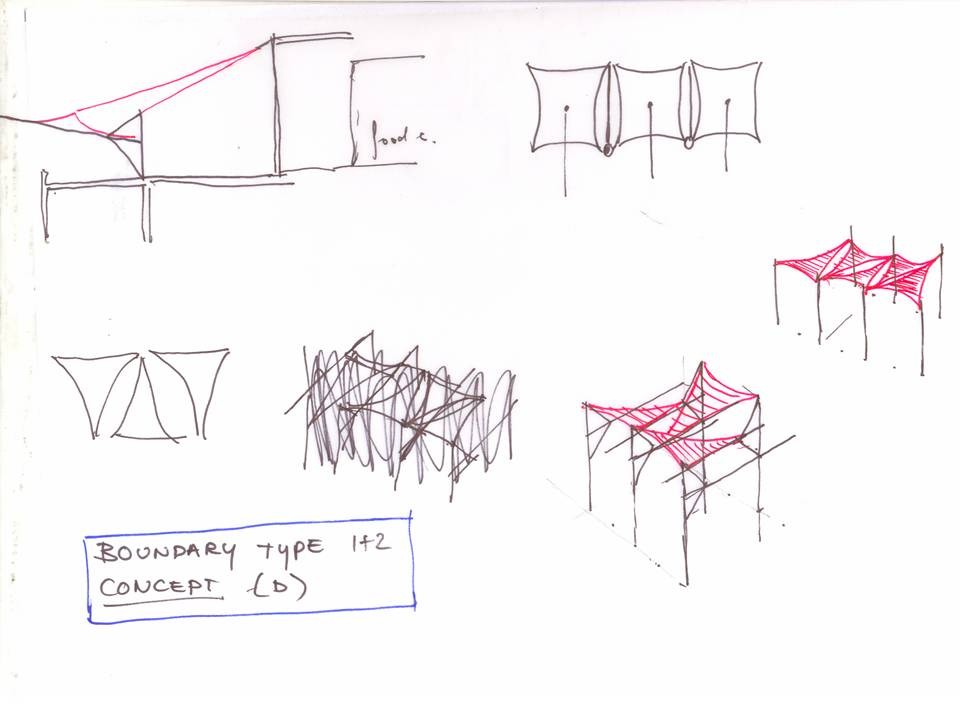 BOUNDARY TYPE 1+2
CONCEPT (D)